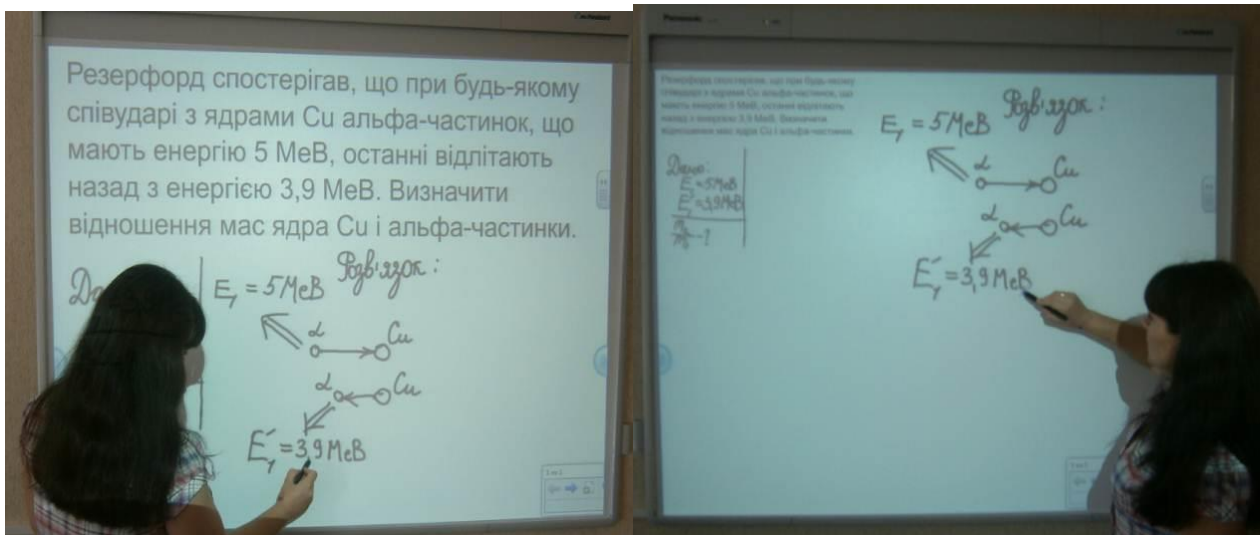 Резерфорд спостерігав, що при будь-якому
співударі з ядрами Cu альфа-частинок, що
мають енергію 5 МеВ, останні відлітають
назад з енергією 3,9 МеВ. Визначити
відношення мас ядра Cu і альфа-частинки.
Розв'язок:
E₁ = 5МеВ
α Cu
α Cu
E₁′ = 3,9 МеВ
Panasonic
Резерфорд спостерігав, що при будь-якому
співударі з ядрами Cu альфа-частинок, що
мають енергію 5 МеВ, останні відлітають
назад з енергією 3,9 МеВ. Визначити
відношення мас ядра Cu і альфа-частинки.
Розв'язок:
E₁ = 5МеВ
Дано:
E₁ = 5МеВ
E₁′ = 3,9МеВ
α Cu
α Cu
E₁′ = 3,9 МеВ